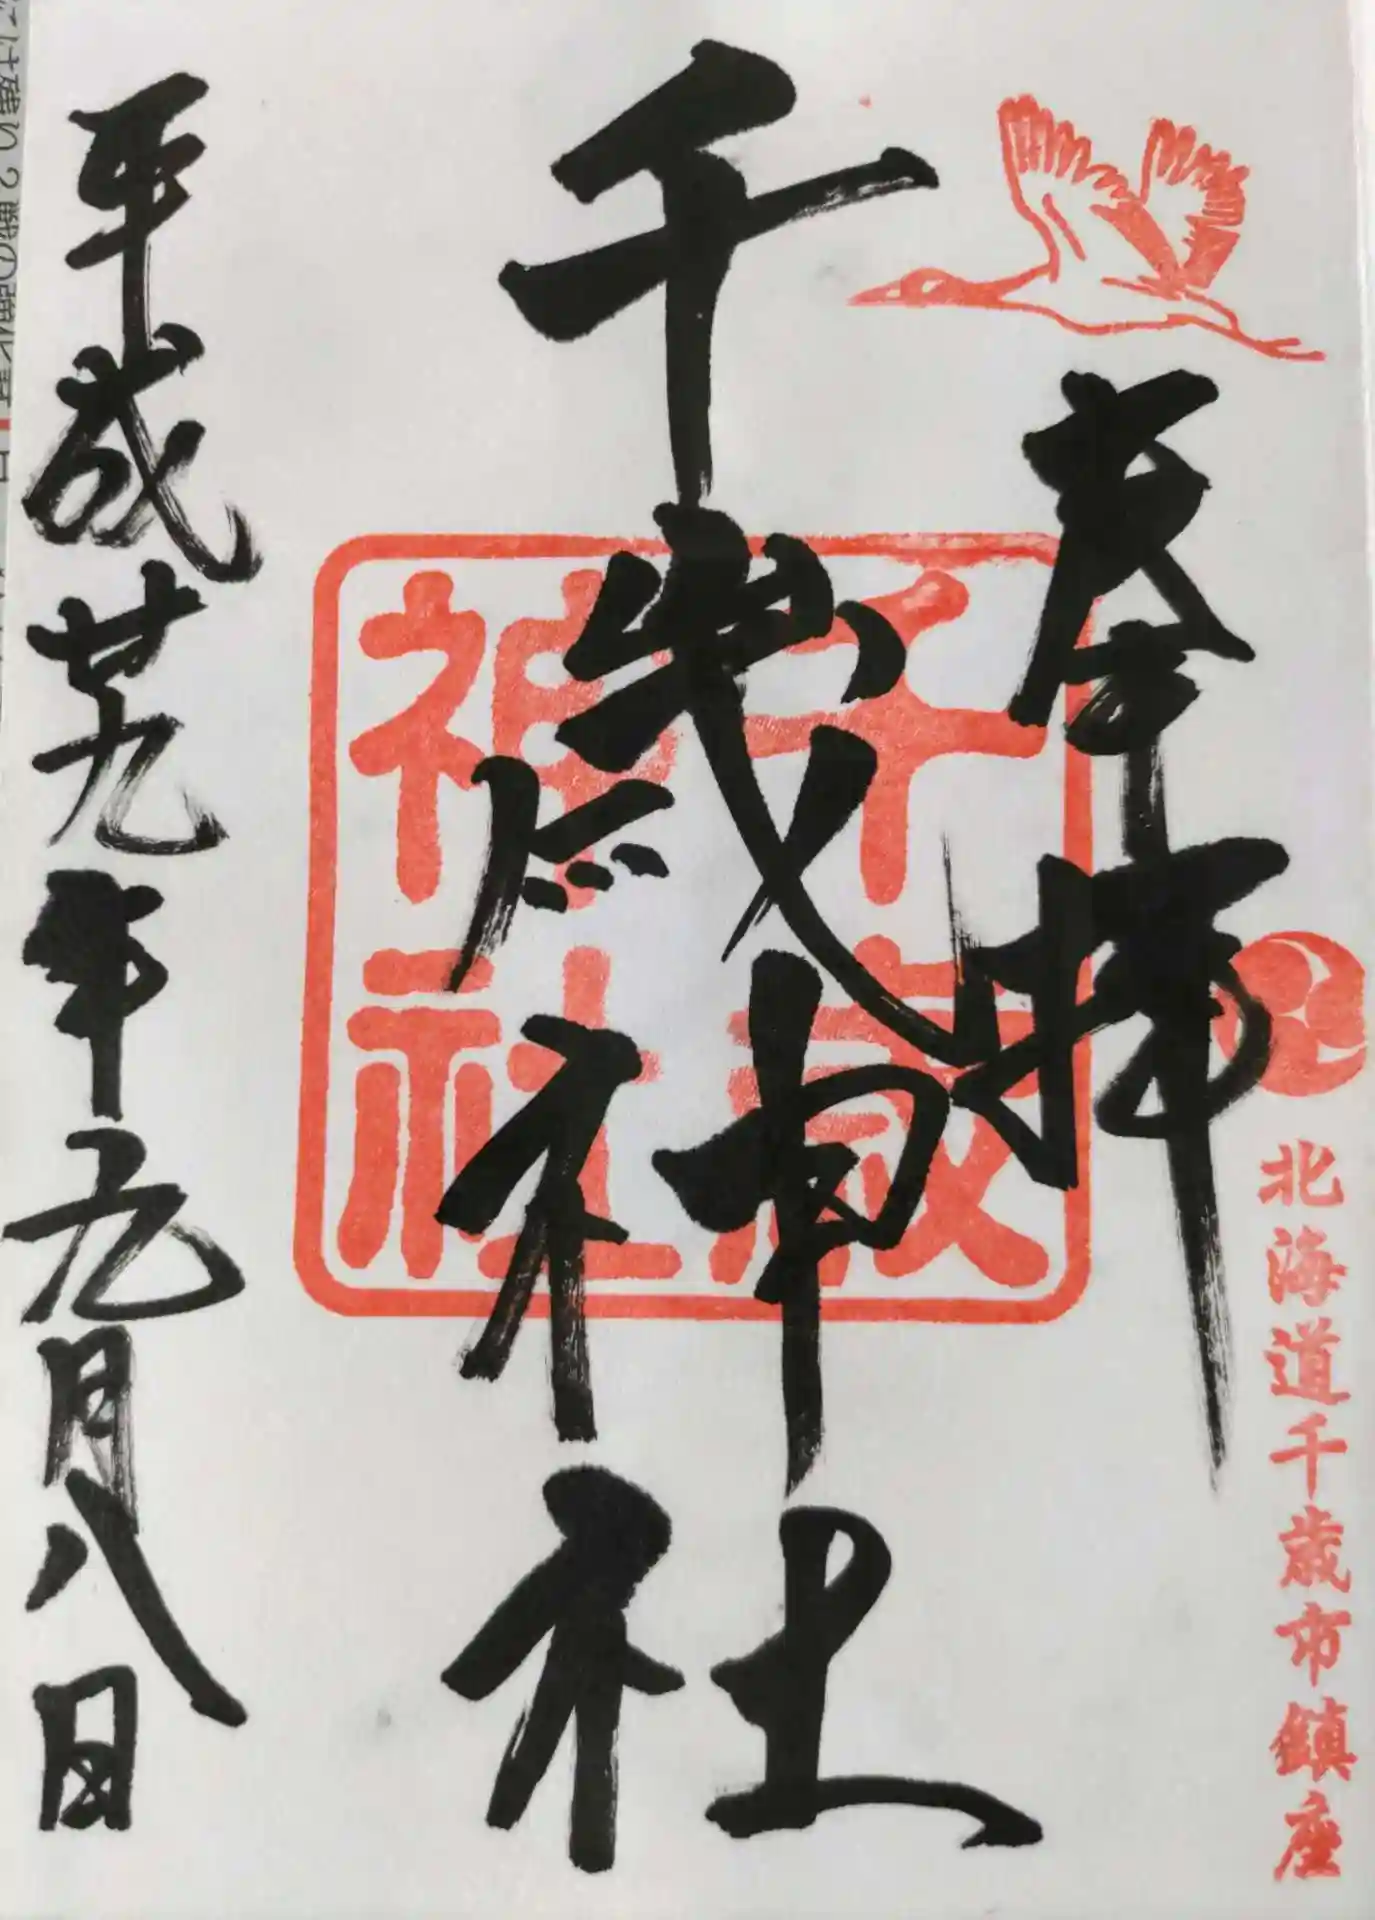 奉拝
北海道千歳市鎮座
千歳神社
千歳
神社
平成廿九年九月八日